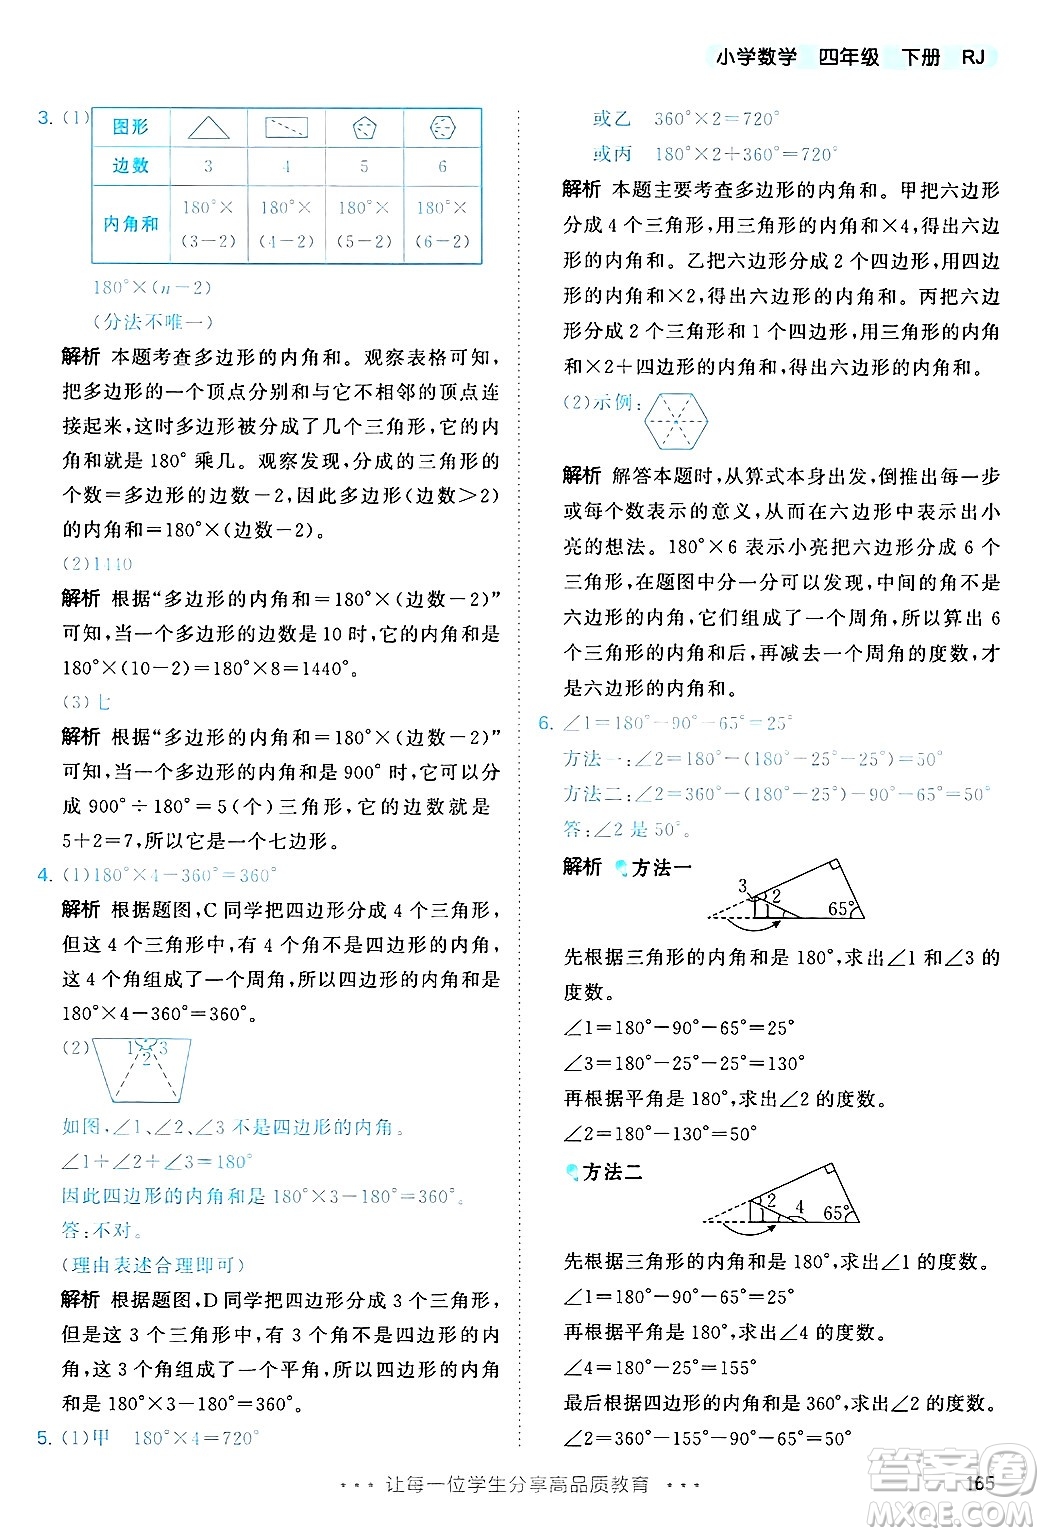 小学数学 四年级 下册 RJ
3. (1)
图形
边数 3 4 5 6
内角和 180°× 180°× 180°× 180°×
(3－2) (4－2) (5－2) (6－2)
180°×(n－2)
(分法不唯一)
解析 本题考查多边形的内角和。观察表格可知，
把多边形的一个顶点分别和与它不相邻的顶点连
接起来，这时多边形被分成了几个三角形，它的内
角和就是 180° 乘几。观察发现，分成的三角形的
个数＝多边形的边数－2，因此多边形(边数＞2)
的内角和＝180°×(边数－2)。
(2)1440
解析 根据“多边形的内角和＝180°×(边数－2)”
可知，当一个多边形的边数是 10 时，它的内角和是
180°×(10－2)＝180°×8＝1440°。
(3)七
解析 根据“多边形的内角和＝180°×(边数－2)”
可知，当一个多边形的内角和是 900° 时，它可以分
成 900°÷180°＝5(个)三角形，它的边数就是
5＋2＝7，所以它是一个七边形。
4. (1)180°×4－360°＝360°
解析 根据题图，C 同学把四边形分成 4 个三角形，
但这 4 个三角形中，有 4 个角不是四边形的内角，
这 4 个角组成了一个周角，所以四边形的内角和是
180°×4－360°＝360°。
(2) 1 2 3
如图，∠1、∠2、∠3 不是四边形的内角。
∠1＋∠2＋∠3＝180°
因此四边形的内角和是 180°×3－180°＝360°。
答：不对。
(理由表述合理即可)
解析 根据题图，D 同学把四边形分成 3 个三角形，
但是这 3 个三角形中，有 3 个角不是四边形的内
角，这 3 个角组成了一个平角，所以四边形的内角和
是 180°×3－180°＝360°。
5. (1)甲 180°×4＝720°
或乙 360°×2＝720°
或丙 180°×2＋360°＝720°
解析 本题主要考查多边形的内角和。甲把六边形
分成 4 个三角形，用三角形的内角和×4，得出六边
形的内角和。乙把六边形分成 2 个四边形，用四边
形的内角和×2，得出六边形的内角和。丙把六边
形分成 2 个三角形和 1 个四边形，用三角形的内角
和×2＋四边形的内角和，得出六边形的内角和。
(2)示例：
解析 解答本题时，从算式本身出发，倒推每一步
或每个数表示的意义，从而在六边形中表示出小
亮的想法。180°×6 表示小亮把六边形分成 6 个
三角形，在题图中分一分可以发现，中间的角不是
六边形的内角，它们组成了一个周角，所以算出 6
个三角形的内角和后，再减去一个周角的度数，才
是六边形的内角和。
6. ∠1＝180°－90°－65°＝25°
方法一：∠2＝180°－(180°－25°－25°)＝50°
方法二：∠2＝360°－(180°－25°)－90°－65°＝50°
答：∠2 是 50°。
解析 方法一
3 2 1 65°
先根据三角形的内角和是 180°，求出∠1 和∠3 的
度数。
∠1＝180°－90°－65°＝25°
∠3＝180°－25°－25°＝130°
再根据平角是 180°，求出∠2 的度数。
∠2＝180°－130°＝50°
方法二
2 1 4 65°
先根据三角形的内角和是 180°，求出∠1 的度数。
∠1＝180°－90°－65°＝25°
再根据平角是 180°，求出∠4 的度数。
∠4＝180°－25°＝155°
最后根据四边形的内角和是 360°，求出∠2 的度数。
∠2＝360°－155°－90°－65°＝50°
让每一位学生分享高品质教育
165
答案圈
MXQE.COM